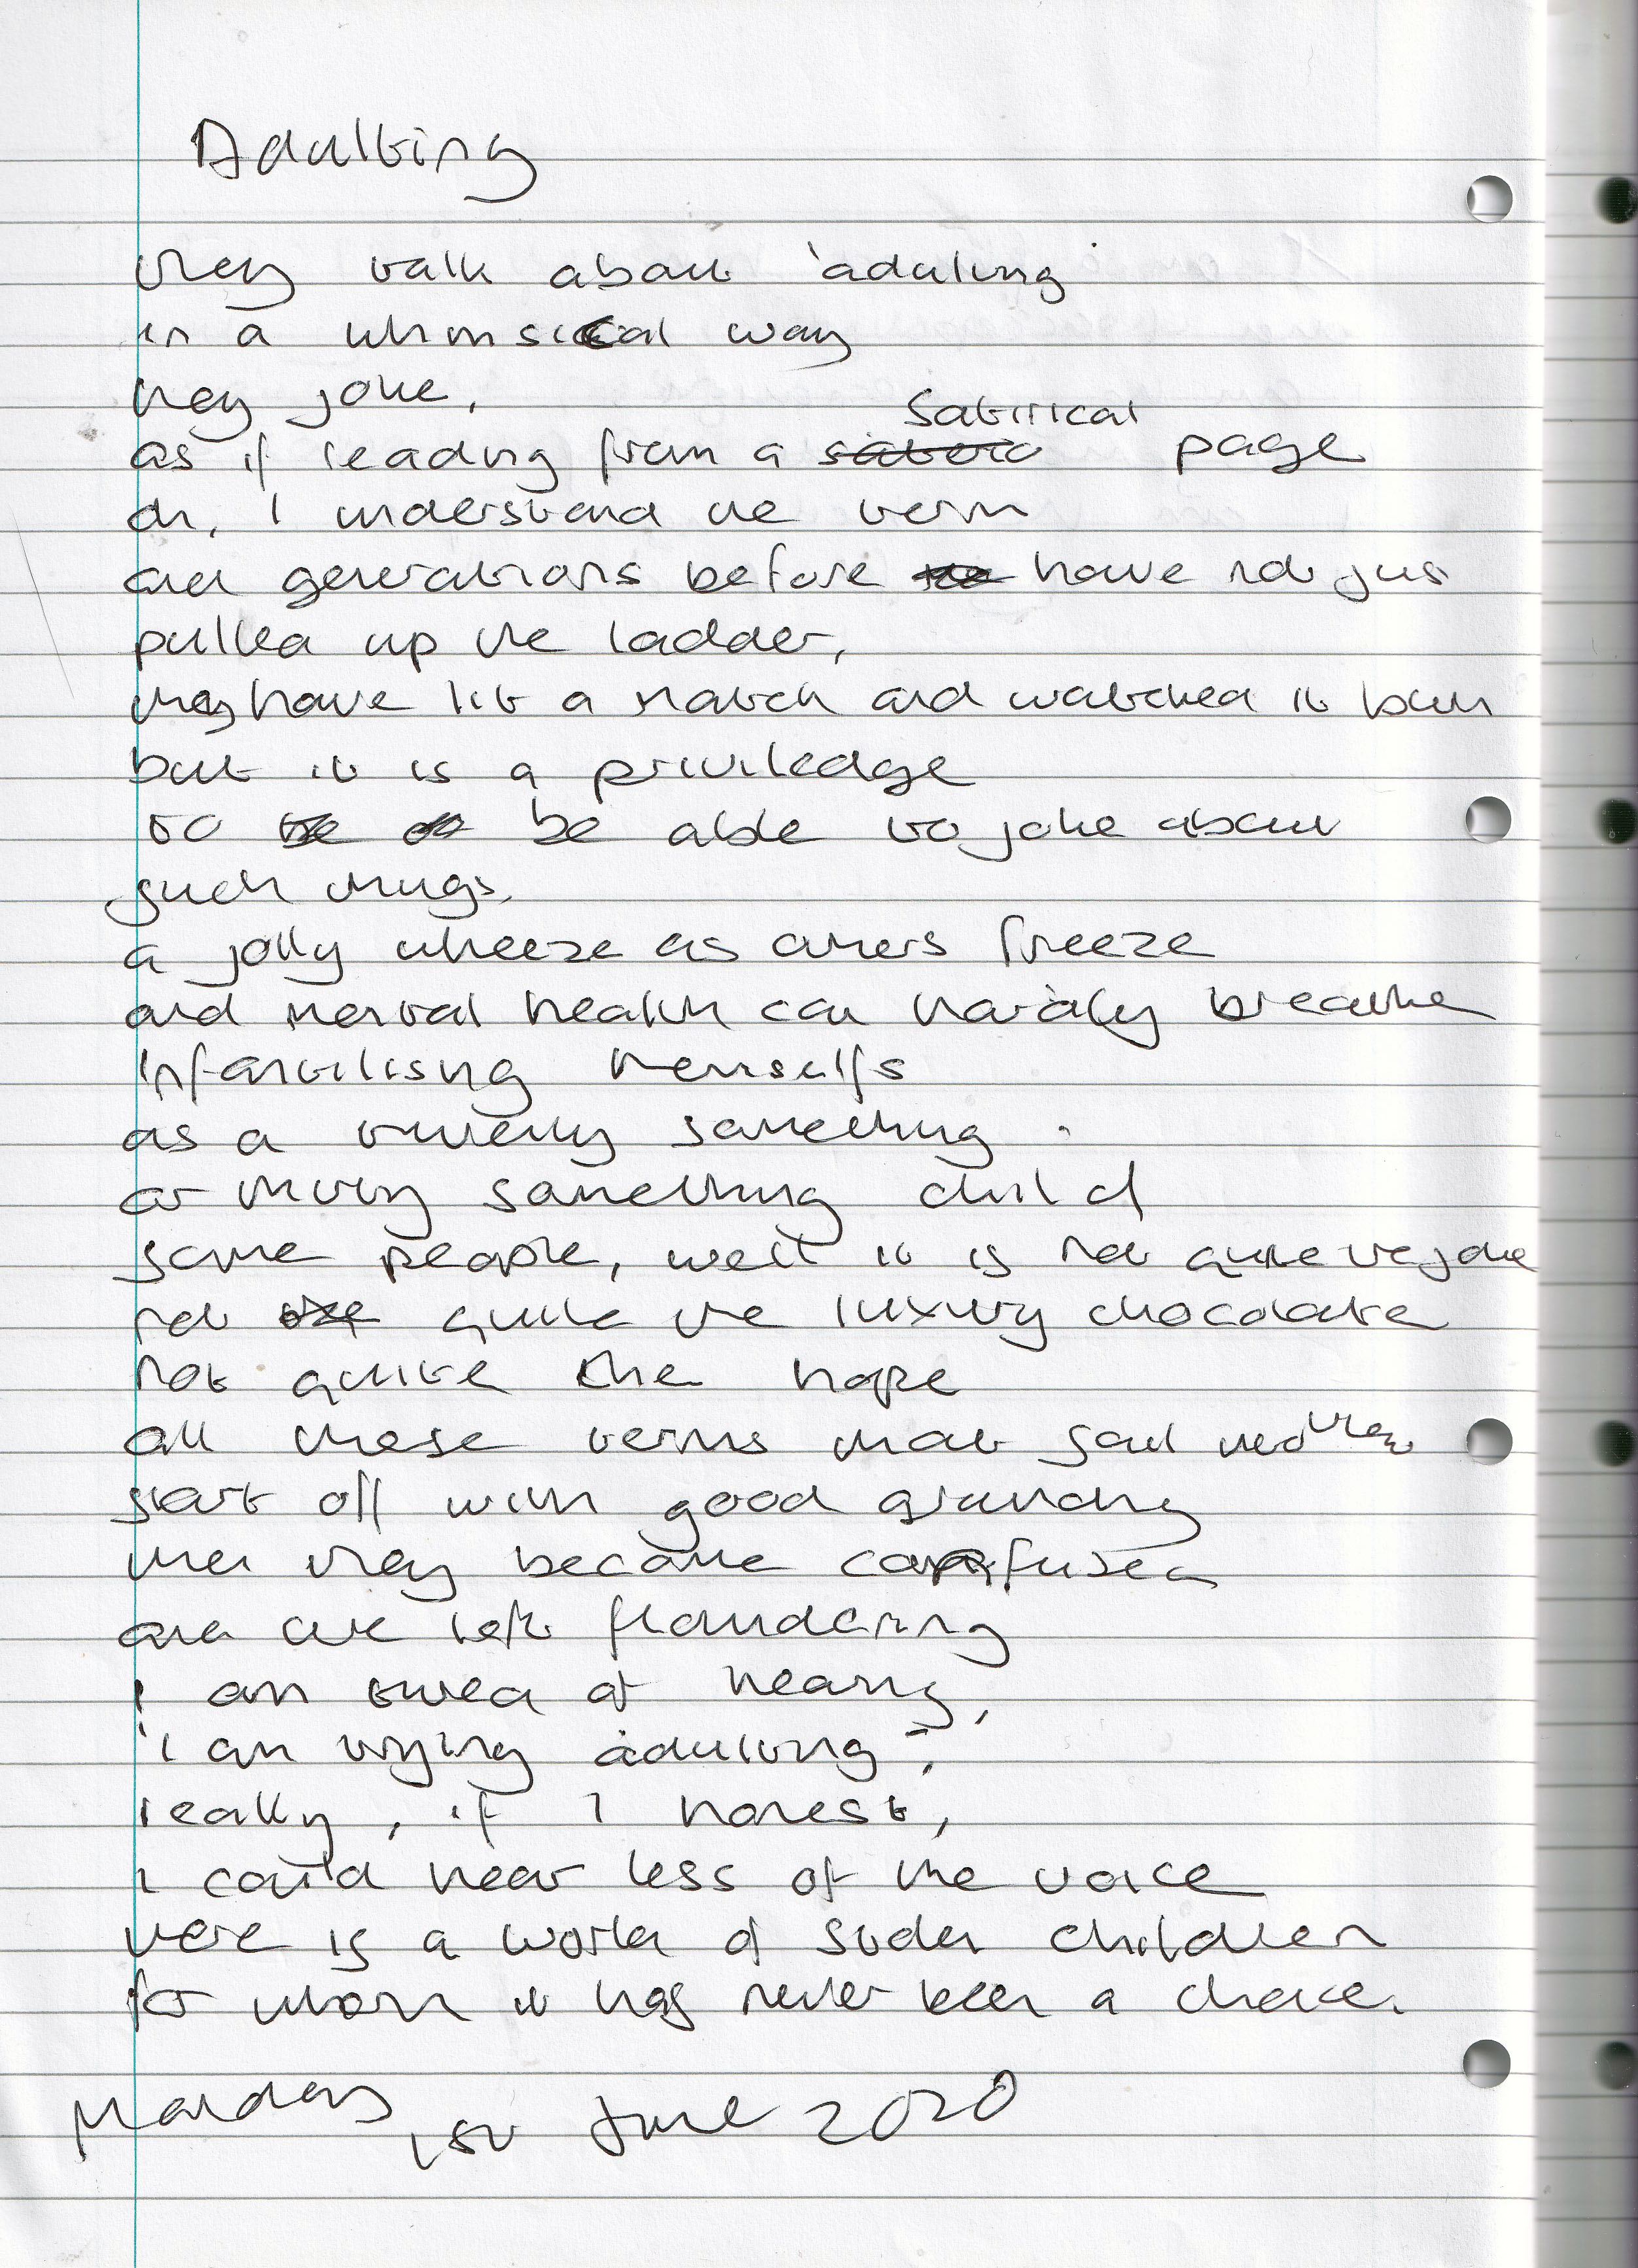 Adulting
they talk about 'adulting
in a whimsical way
they joke,
as if reading from a satirical page
oh, I understand the term
and generations before have not just
pulled up the ladder,
they have lit a match and watched it burn
but it is a priviledge
to be able to joke about
such things,
a jolly wheeze as others freeze
and mental health can hardly breathe
infantilising themselfs
as a twenty something
or thirty something child
some people, well it is not quite the joke
not quite the luxury chocolate
not quite the hope
all these terms that
start off with good grounding
then they become confused
and are left floundering
I am tired of hearing,
'I am trying adulting',
really, if I honest,
I could hear less of the voice
there is a world of stolen children
for whom it has never been a choice.
Monday, 1st June 2020